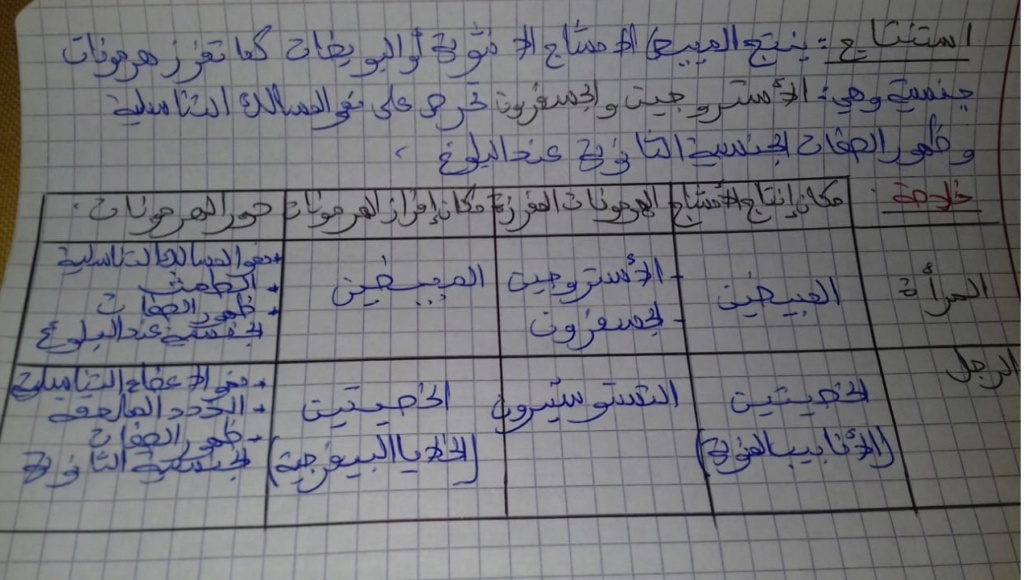 استنتاج : ينتج المبيض الأمشاج الأنثوية أو البويضات كما تفرز هرمونات
جنسية وهي: الأستروجين والجسفرون تحرص على نمو المسالك التناسلية
وظهور الصفات الجنسية الثانوية عند البلوغ .
خلاصة: مكان إنتاج الأمشاج الهرمونات المفرزة مكان إفراز الهرمونات دور الهرمونات .
المرأة
المبيضين
- الأستروجين
- الجسفرون
المبيضين
- نمو المسالك التناسلية
- الطمث
- ظهور الصفات
الجنسية عند البلوغ
الرجل
الخصيتين
(الأنابيب المنوية)
التستوستيرون
الخصيتين
(الخلايا البيفرجية)
- نمو الأعضاء التناسلية
- الغدد الملحقة
- ظهور الصفات
الجنسية الثانوية